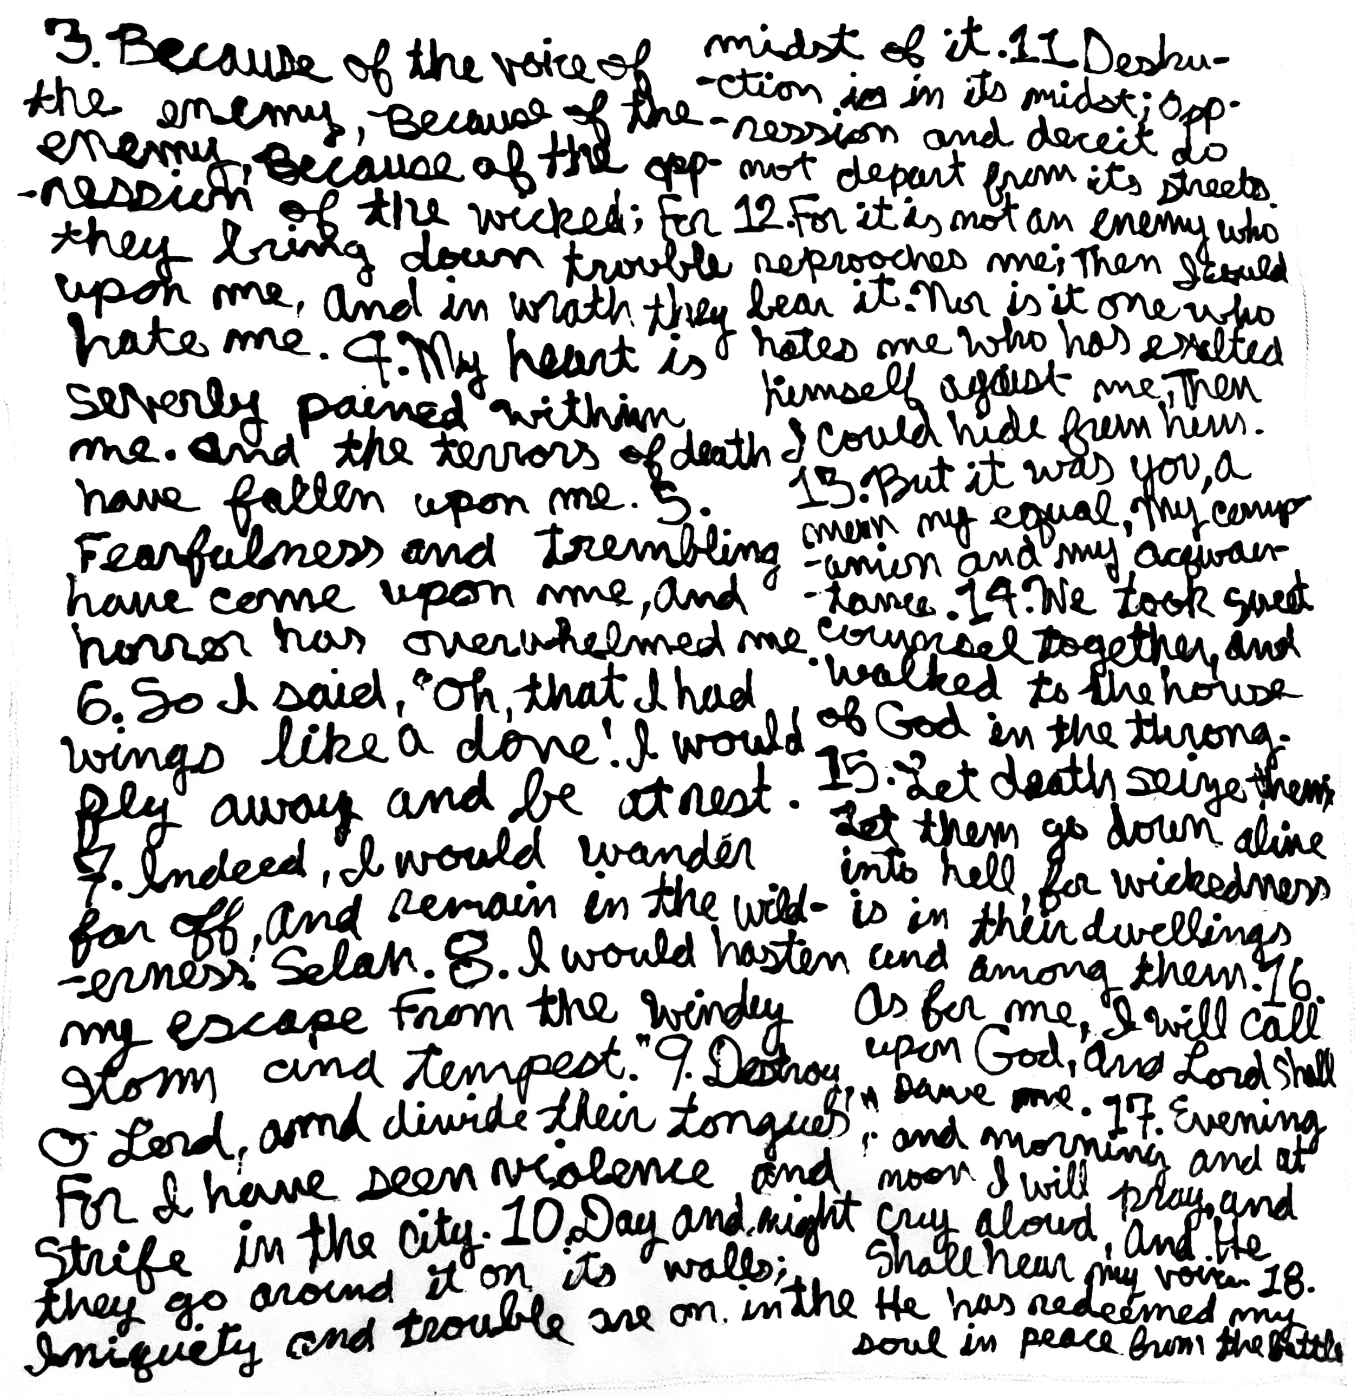 3. Because of the voice of
the enemy, Because of the
enemy, Because of the opp-
-ression of the wicked; For
they bring down trouble
upon me, and in wrath they
hate me. 4. My heart is
severly pained within
me. and the terrors of death
have fallen upon me. 5.
Fearfulness and trembling
have come upon me, and
horror has overwhelmed me.
6. So I said, "Oh, that I had
wings like a dove! I would
fly away and be at rest.
7. Indeed, I would wander
far off, and remain in the wild-
-erness. Selah. 8. I would hasten
my escape From the windy
storm and tempest." 9. Destroy,
O Lord, and divide their tongues,
For I have seen violence and
Strife in the city. 10. Day and night
they go around it on its walls;
Iniquety and trouble are on. in the
midst of it. 11 Destru-
-ction is in its midst; opp-
-ression and deceit do
not depart from its streets.
12. For it is not an enemy who
reprooches me; Then I could
bear it. Nor is it one who
hates me who has exalted
himself against me, Then
I could hide from him.
13. But it was you, a
man my equal, My comp-
-anion and my acqwain-
-tance. 14. We took sweet
counsel together, and
walked to the house
of God in the throng.
15. Let death seize them;
Let them go down alive
into hell, for wickedness
is in their dwellings
and among them. 16.
As for me, I will call
upon God, and Lord Shall
save me. 17. Evening
and morning and at
noon I will pray, and
cry aloud, and He
Shall hear my voice. 18.
He has redeemed my
soul in peace from the battle